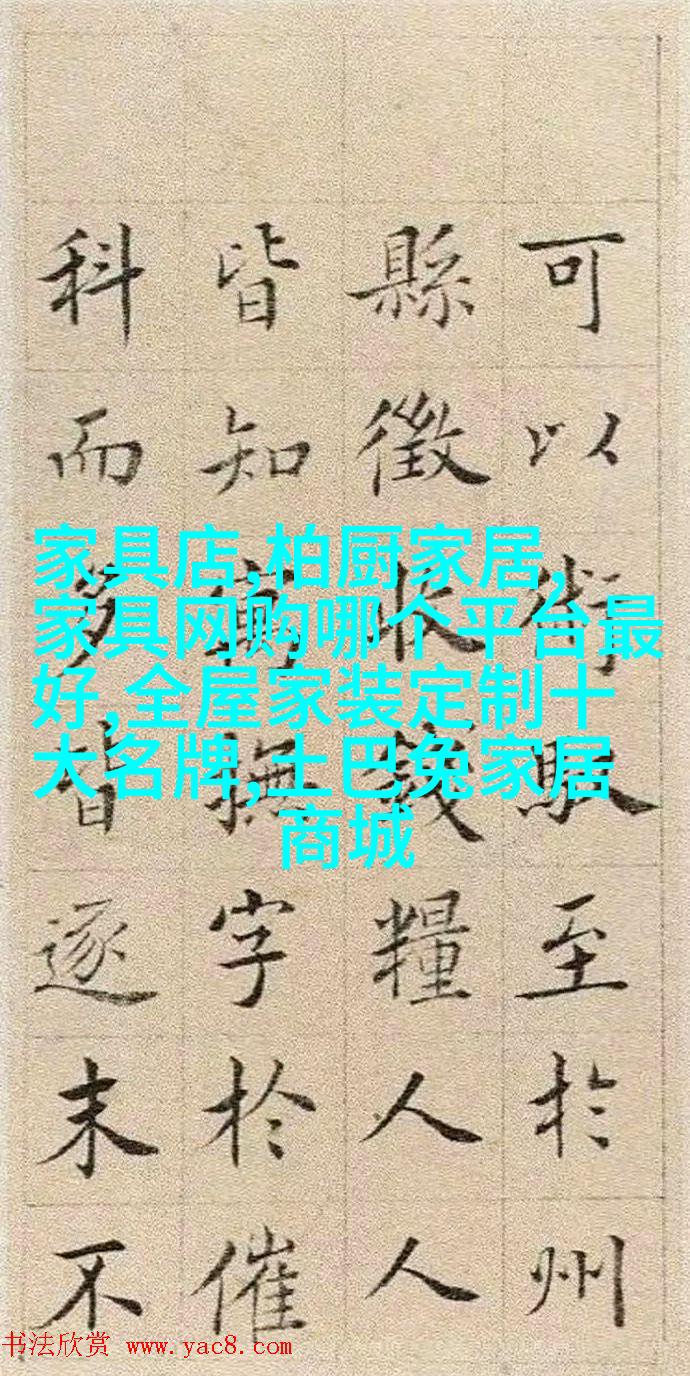 可以術馭至於州
縣徵收錢糧人人
皆知寓撫字於催
科而多皆逐末不
家具店,柏厨家居,
家具网购哪个平台最
好,全屋家装定制十
大名牌,土巴兔家居
商城
书法欣赏 www.yac8.com